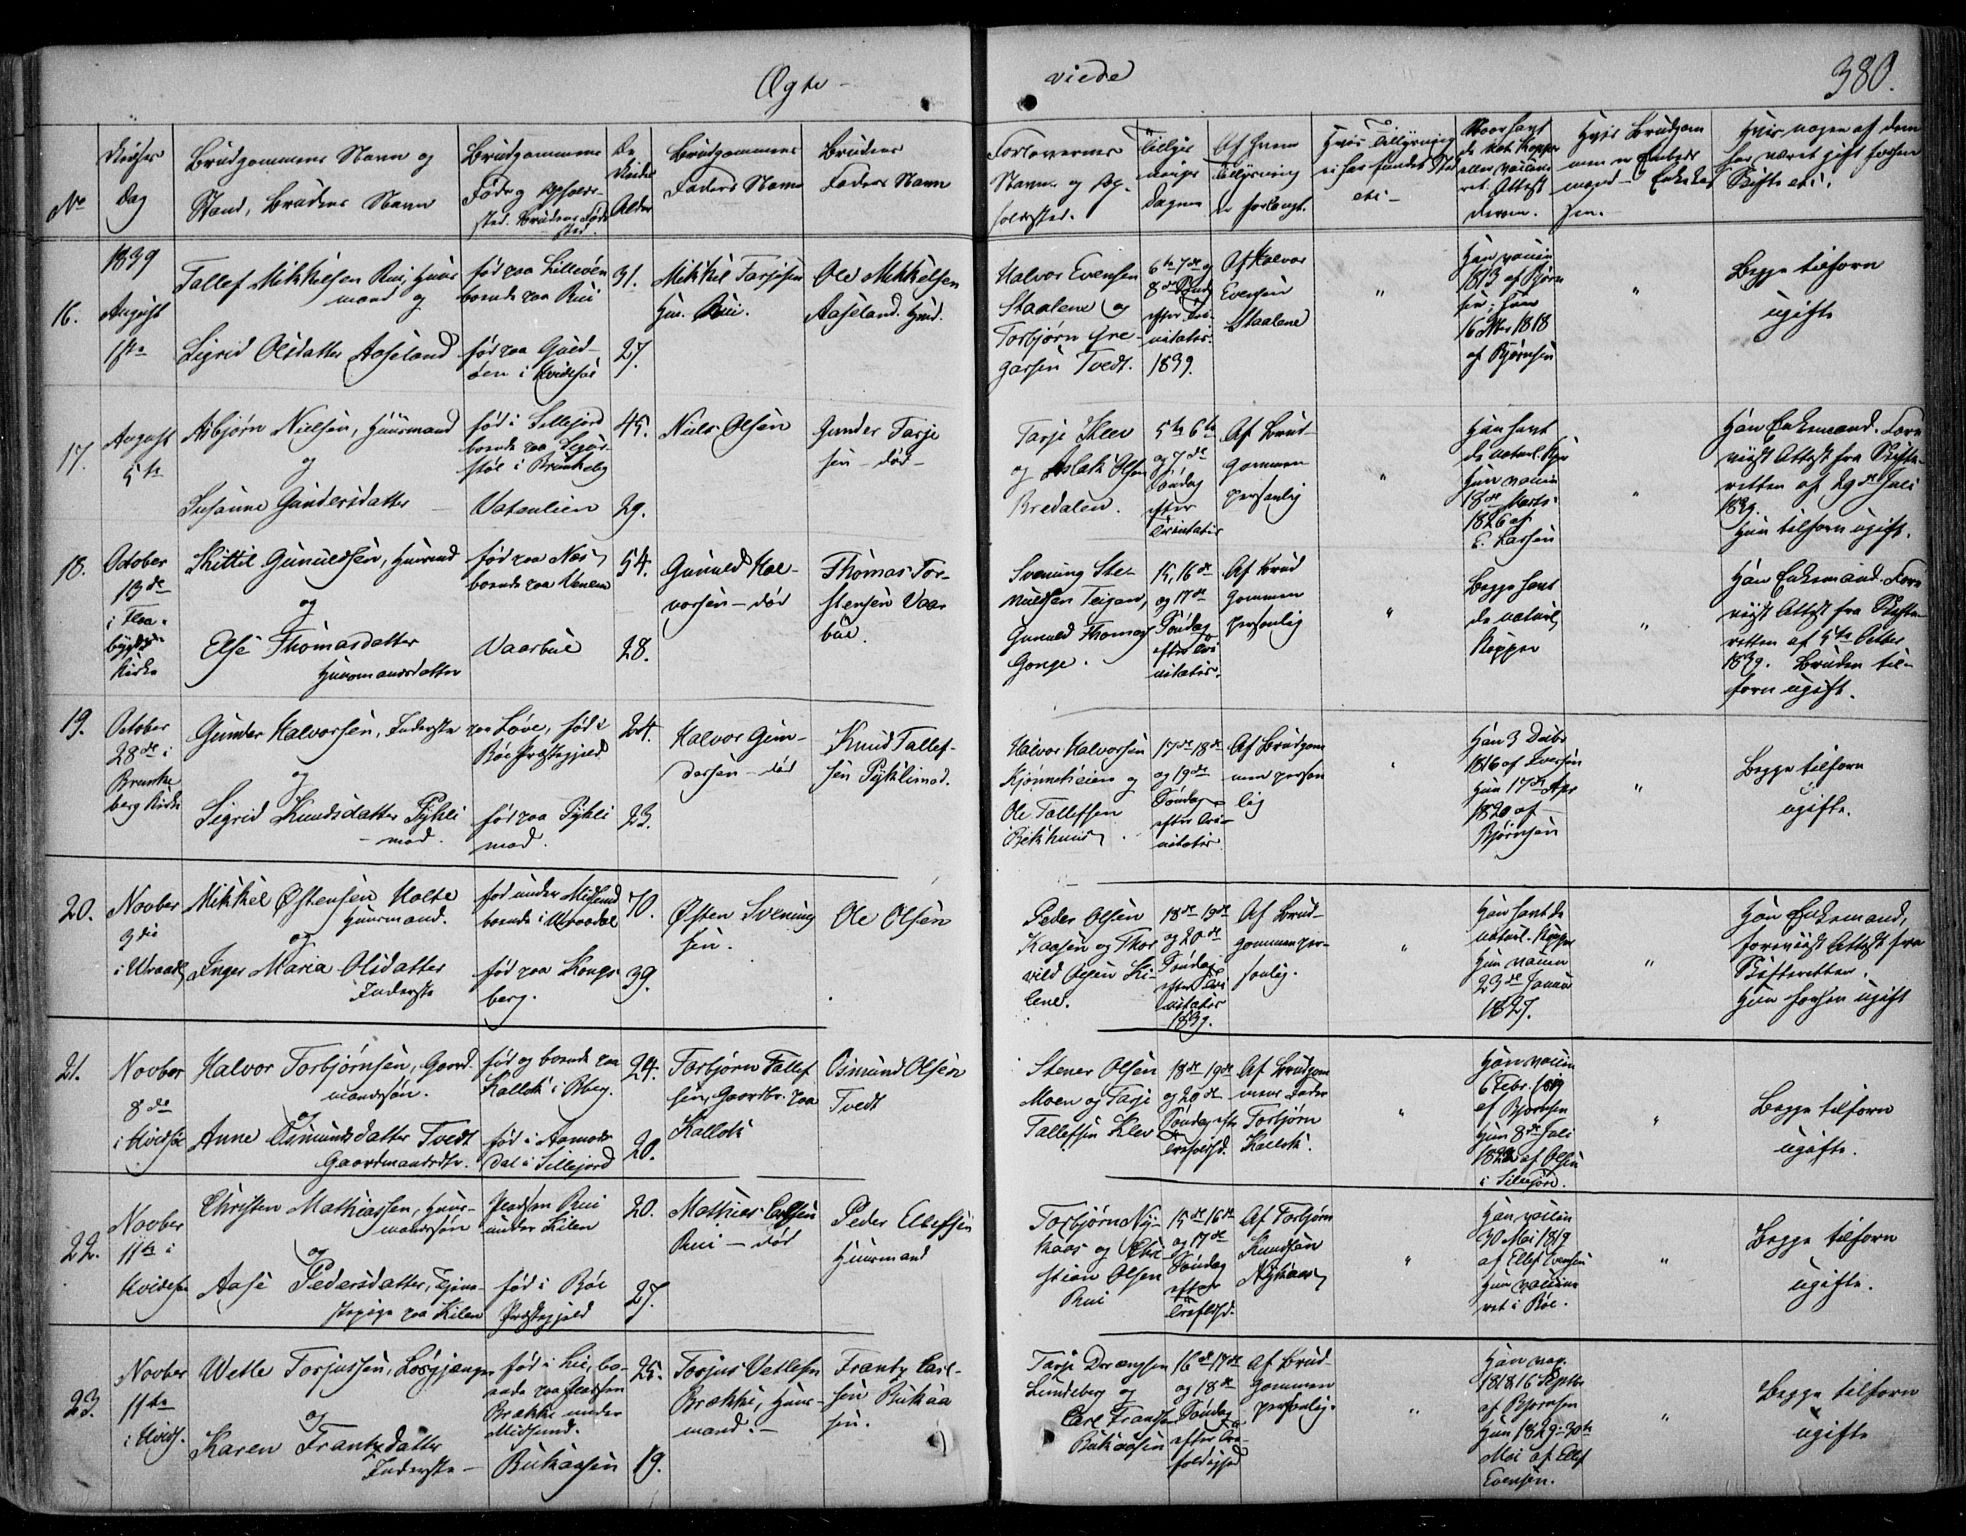 Ægte- viede 380.
No
Vielses
Dag
Brudgommens Navn og
Stand, Brudens Navn
Brudgommens
Føde og Opholds-
sted. Brudens Føde
sted.
De
Viedes
Alder
Brudgommens
Faders Navn
Brudens
Faders Navn
Forlovernes
Navn og Op-
holdssted.
Tillys-
nings
Dagene
Af hvem
Tillysning
er forlangt.
Hvis Tillysning
ei har fundet Sted
eti-
eller vaccine
ret. Attest
derom.
Hvis Brudgom
men er Embeds
mand
Hvis nogen af dem
har været gift forhen
Skifte etc.
1839
16. August
1ste
Tallef Mikkelsen Rui, Huus
mand og
Sigrid Olsdatter Aaseland
født paa Lilleøen
boende paa Rui
født paa Guld-
øen i Hvidesøe
31.
27.
Mikkel Tarjesen
Hm. Rui.
Ole Mikkelsen
Aaseland. Hmd.
Halvor Evensen
Staalene og
Torbjørn Gre-
garsen Tvedt.
6te 7de og
8de Sønd
efter Tri-
nitatis
1839.
Af Halvor
Evensen
Staalene
"
Han vaccin
1813 af Bjørn
sen; hun
16 Octbr 1818
af Bjørnsen
"
Begge tilforn
ugifte
17. August
5te
Asbjørn Nielsen, Huusmand
og
Susanne Gundersdatter
født i Sillejord
boende paa
støl i Brunkeberg
Vatenlien
45.
29.
Niels Olsen
Gunder Tarje
sen - død -
Tarje Klev
og Aslak Olsen
Bredalen.
5te 6te
og 7de
Søndag
efter
Trinitatis
Af Brud-
gommen
personlig
"
Han havt
de naturl. Kop
Hun vaccin
18de Marts
1826 af
E. Larsen
"
Han Enkemand. Fore
viist Attest fra Skifte-
retten af 29de Juli
1839.
Hun tilforn ugift.
18. October
13de
i Flaa-
bygds
Kirke
Kittil Gunuldsen, Huusmd
og
Else Thomasdatter
Huusmandsdatter
født paa Næs
boende paa Venem
Vaarbue
54.
28.
Gunuld Hal-
vorsen - død
Thomas Tor-
stensen Vaar
bue.
Svenung Ste-
nulsen Teigen,
Gunuld Thomas
Gonge.
15, 16de
og 17de
Søndag
efter Tri
nitatis.
Af Brud
gommen
personlig
"
Begge havt
de naturl.
Kopper
"
Han Enkemand. Fore
viist Attest fra Skifte-
retten af 5te Octbr
1839. Bruden til-
forn ugift.
19. October
28de i
Brunke
berg Kirke
Gunder Halvorsen, Inderste
og
Sigrid Knudsdatter Tykli
- mod.
paa Løve, født i
Bøe Præstegjeld
født paa Tykli
mod.
24.
23.
Halvor Gun-
dersen - død
Knud Tallef-
sen Tyklimod.
Halvor Halvorsen
Kjønneheien og
Ole Tallefsen
Bekhuus.
17de 18de
og 19de
Søndag
efter Tri-
nitatis
Af Brudgom
men person
lig
Han 3 Decbr
1816 af Iversen
Hun 17de Apr
1820 af
Bjørnsen
"
Begge tilforn
ugifte.
20. Novber
3die
i Vraadl
Mikkel Østensen Holte
Huusmand.
og
Inger Maria Olsdatter
Inderste
født under Midsund
boende i Vraadal
født paa Kongs
berg.
70.
39.
Østen Svenung
sen.
Ole Olsen
Peder Olsen
Kaasen og Thor
vild Olsen Ki-
lene.
18de 19de
og 20de
Søndag
efter Tri
nitatis
1839.
Af Brud-
gommen per-
sonlig.
"
Han havt de
naturl. Kopper
Hun vaccin
23de Januar
1827.
"
Han Enkemand,
foreviist Attest fra
Skifteretten.
Hun forhen ugift
21. Novber
8de
i Hvidsøe
Halvor Torbjørnsen, Gaard
mandssøn.
og
Anne Osmundsdatter Tvedt
Gaardmandsdtr.
født og boende paa
Kallok i Bberg.
født i Aamots
dal i Sillejord
24.
20.
Torbjørn Tallef
sen, Gaardbr. paa
Kallok
Osmund Olsen
Tvedt
Stener Olsen
Moen og Tarje
Tallefsen Klev
18de 19de
og 20de
Søndag efter
Trefoldhd.
Af Brudgom
mens Fader
Torbjørn
Kallok.
"
Han vaccin
6 Febr. 1819
af Bjørnsen
Hun 8de Juli
1822 af Olsen
i Silejord.
"
Begge tilforn
ugifte.
22. Novber
11te i
Hvidesøe
Christen Mathiassen, Huus-
mandssøn
og
Aase Pedersdatter, Tjene-
stepige paa Kilen
Pladsen Rui
under Kilen
født i Bøe
Præstegjeld
20.
27.
Mathias Carlsen
Rui - død
Peder Ellefsen
Huusmand
Torbjørn Ny-
kaas og Chri
stian Olsen
Rui
15de 16de
og 17de
Søndag
efter
Trefldhd.
Af Torbjørn
Knudsen
Nykaas
"
Han vaccin
30 Mai 1819
af Ellef Evensen
Hun vaccine
ret i Bøe.
"
Begge tilforn
ugifte.
23. Novber
11te
i Hvids.
Wetle Torjussen, Løsgjænger
og
Karen Frantzdatter
Inderste -
født i Lie, bo-
ende paa Pladsen
Brække under
Midsund.
Bukaasen
25.
19.
Torjus Vetlesen
Brække, Huus-
mand. -
Frantz Carl-
sen Bukaa
sen.
Tarje
Lundeberg og
Carl Frantsen
Bukaasen
16de 17de
og 18de
Søndag
efter Tre-
foldighed
Af Brud-
gommen
personlig.
"
Han vac.
1818 16 Septbr
af Bjørnsen
Hun 1829 30te
Mai af Ellef
Evensen.
"
Begge tilforn
ugifte